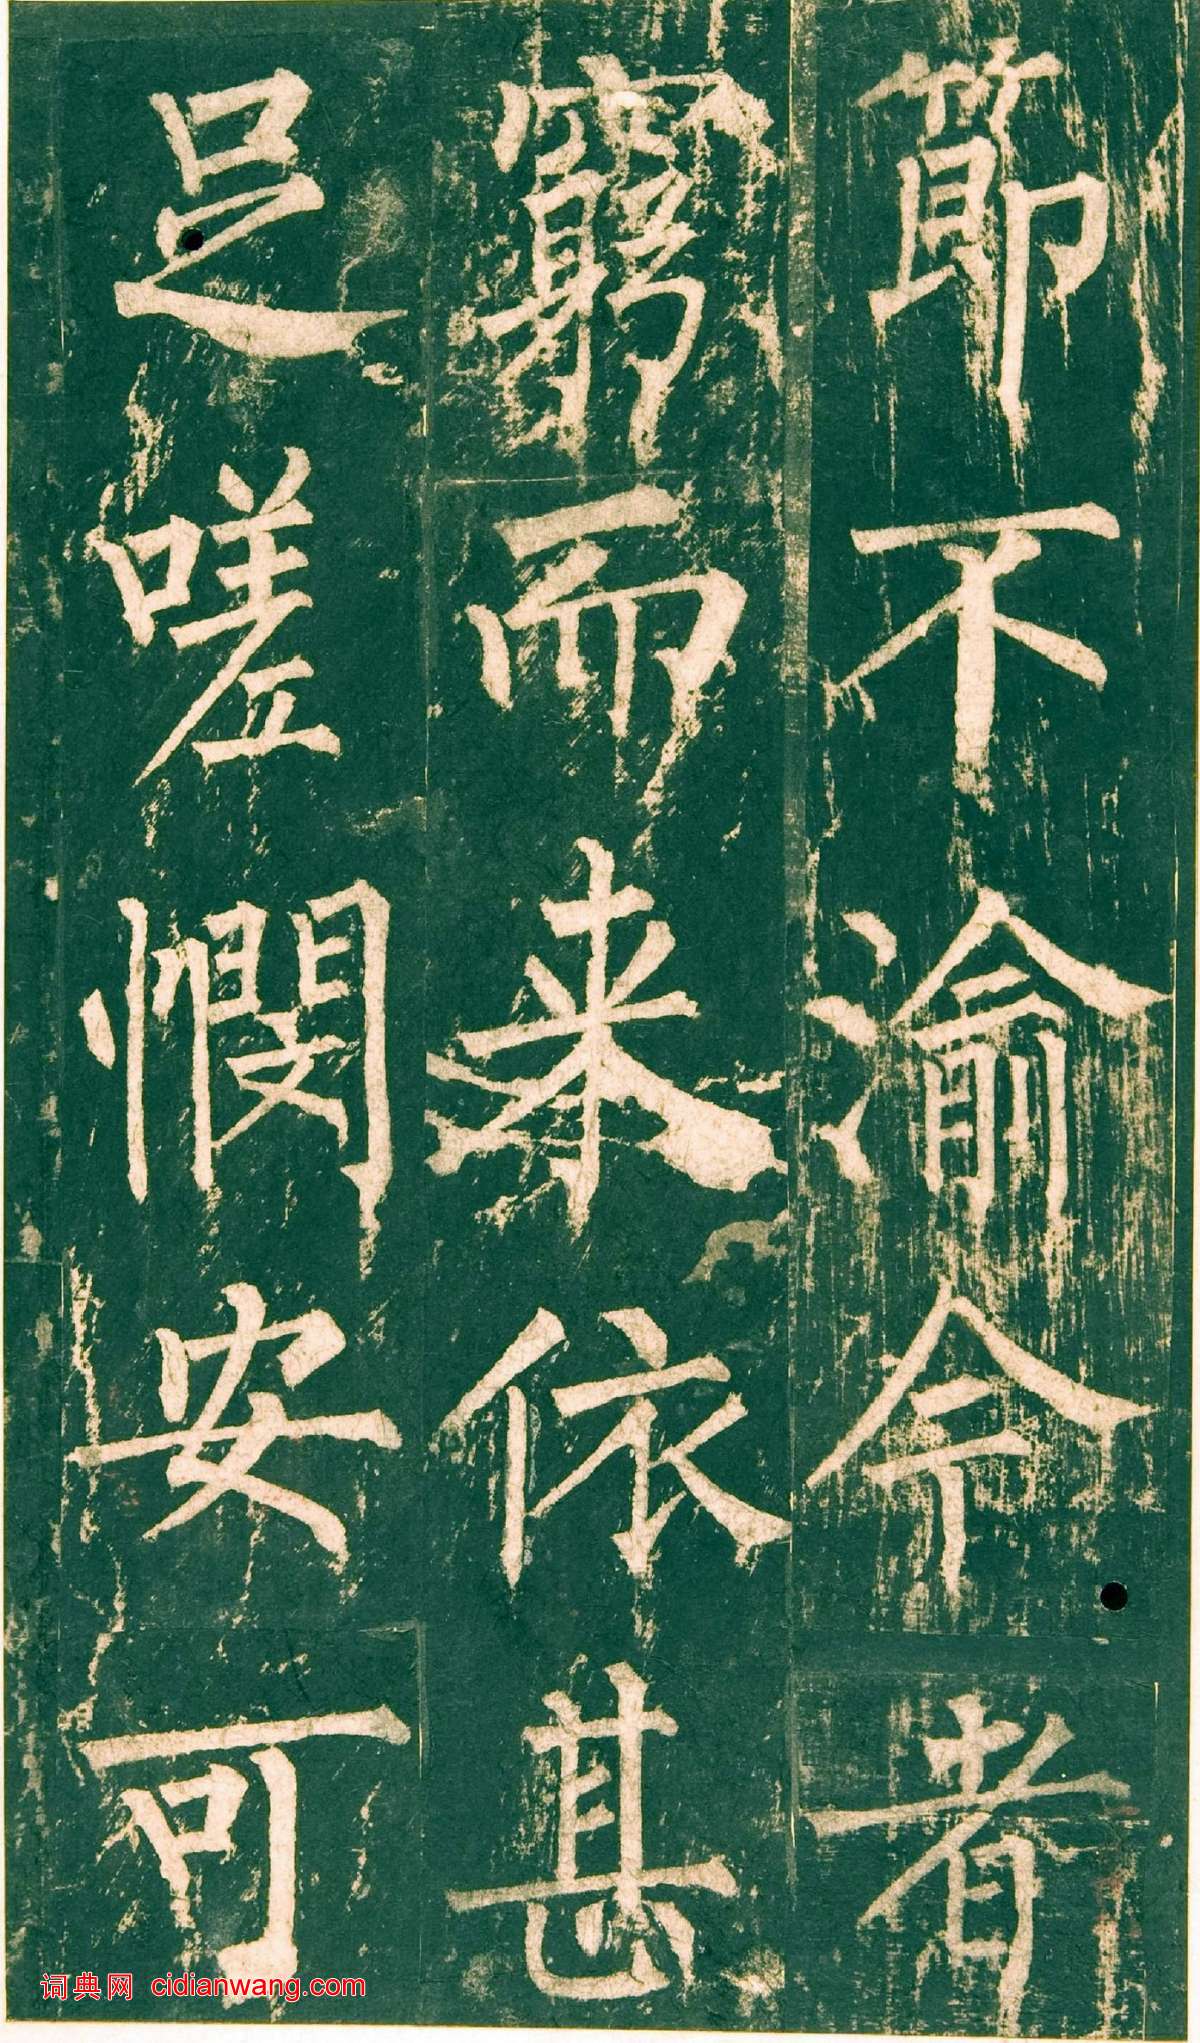 節不渝今者
窮而来依甚
足嗟憫安可
词典网 cidianwang.com